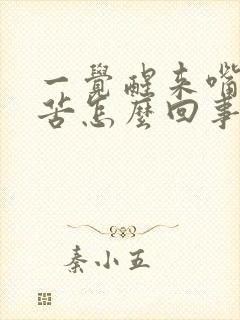 一覺醒來嘴
苦怎麼回事
秦小五